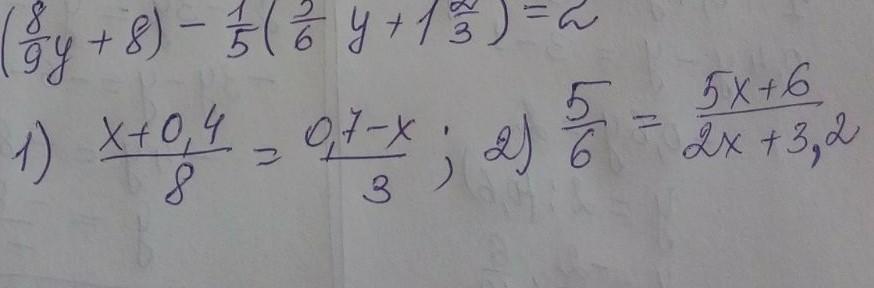 (8/9 y + 8) - 1/5 (5/6 y + 1 2/3) = 2
1) x+0,4/8 = 0,7-x/3 ; 2) 5/6 = 5x+6/2x+3,2